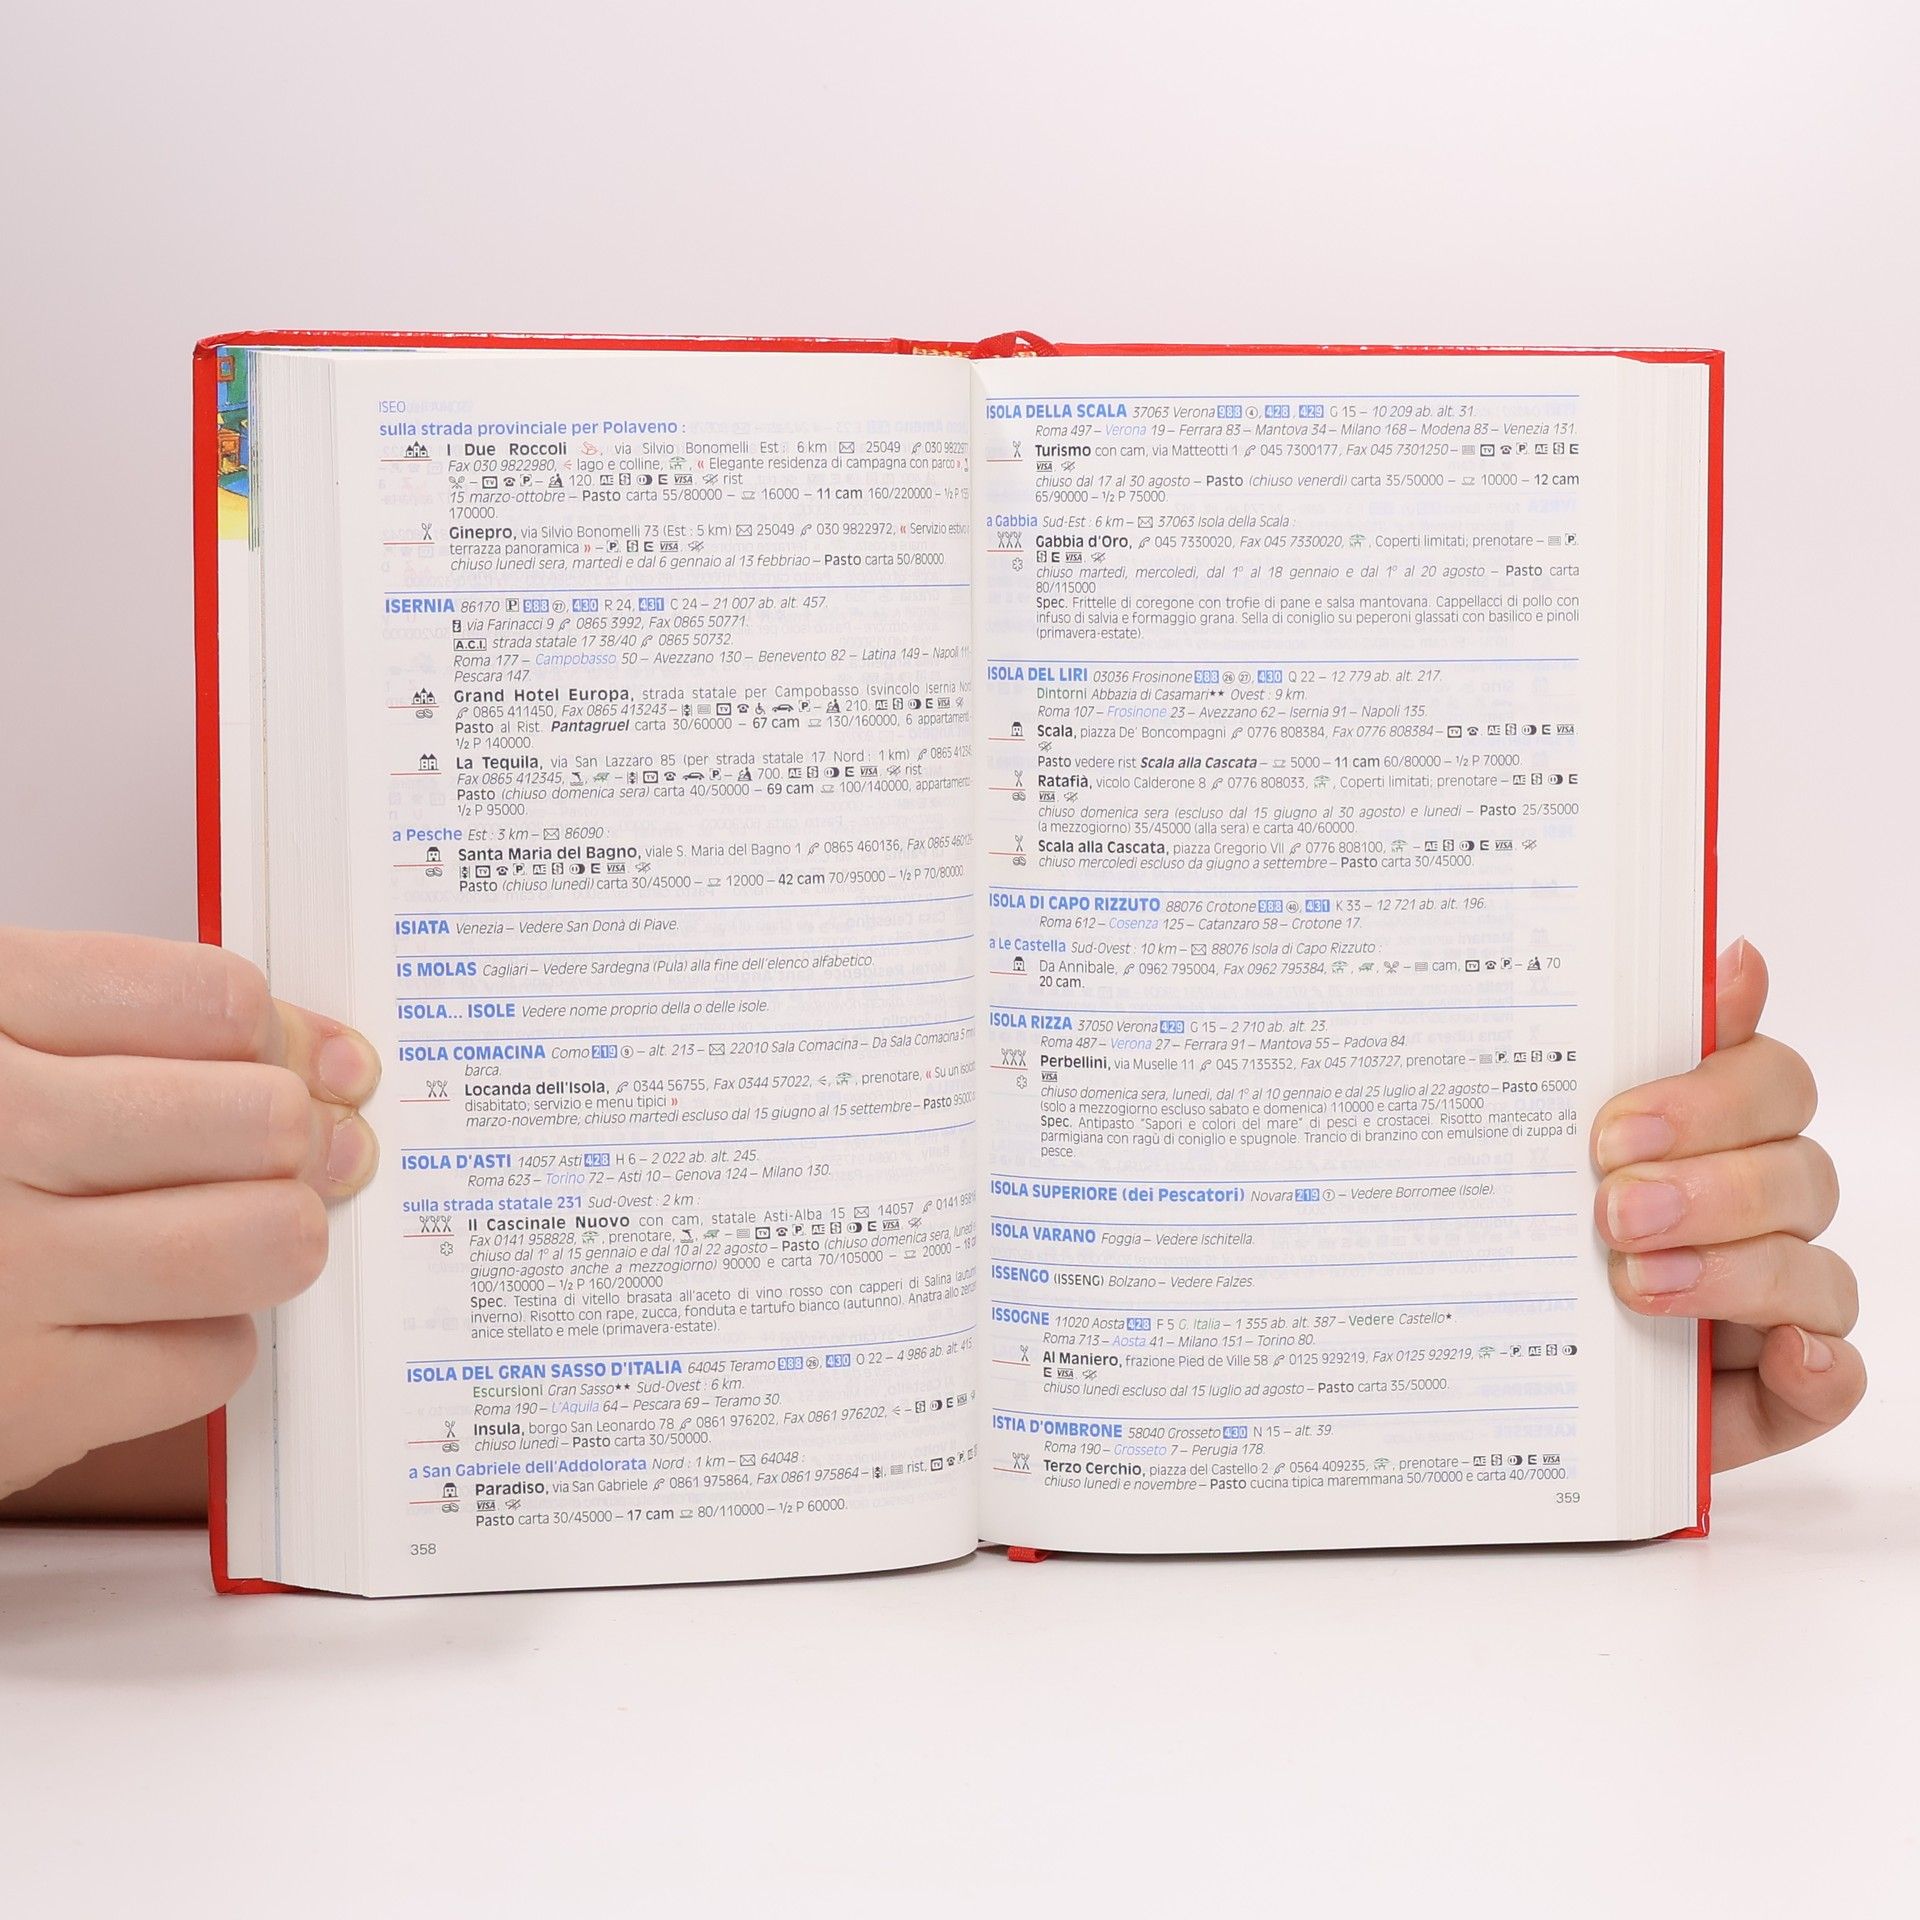 ISEO
sulla strada provinciale per Polaveno :
I Due Roccoli , via Silvio Bonomelli Est : 6 km 25049 030 9822977
Fax 030 9822980, lago e colline, , « Elegante residenza di campagna con parco »,
– TV P – 120. AE E VISA. rist
15 marzo-ottobre – Pasto carta 55/80000 – 16000 – 11 cam 160/220000 – ½ P
170000.
Ginepro, via Silvio Bonomelli 73 (Est : 5 km) 25049 030 9822972, « Servizio estivo
terrazza panoramica » – P. E VISA.
chiuso lunedì sera, martedì e dal 6 gennaio al 13 febbriao – Pasto carta 50/80000.
ISERNIA 86170 P 988 27, 430 R 24, 431 C 24 – 21 007 ab. alt. 457.
via Farinacci 9 0865 3992, Fax 0865 50771.
A.C.I. strada statale 17 38/40 0865 50732.
Roma 177 – Campobasso 50 – Avezzano 130 – Benevento 82 – Latina 149 – Napoli 111 –
Pescara 147.
Grand Hotel Europa, strada statale per Campobasso (svincolo Isernia Nord
0865 411450, Fax 0865 413243 – TV P – 210. AE E VISA
Pasto al Rist. Pantagruel carta 30/60000 – 67 cam 130/160000, 6 appartamenti
½ P 140000.
La Tequila, via San Lazzaro 85 (per strada statale 17 Nord : 1 km) 0865
Fax 0865 412345, – TV P – 700. AE E VISA. rist
Pasto (chiuso domenica sera) carta 40/50000 – 69 cam 100/140000, appartamento
½ P 95000.
a Pesche Est : 3 km – 86090 :
Santa Maria del Bagno, viale S. Maria del Bagno 1 0865 460136, Fax 0865
TV P AE E VISA.
Pasto (chiuso lunedì) carta 30/45000 – 12000 – 42 cam 70/95000 – ½ P 70/80000.
ISIATA Venezia – Vedere San Donà di Piave.
IS MOLAS Cagliari – Vedere Sardegna (Pula) alla fine dell'elenco alfabetico.
ISOLA... ISOLE Vedere nome proprio della o delle isole.
ISOLA COMACINA Como 219 9 – alt. 213 – 22010 Sala Comacina – Da Sala Comacina 5 mn
barca.
Locanda dell'Isola, 0344 56755, Fax 0344 57022, , , prenotare, « Su un
disabitato; servizio e menu tipici »
marzo-novembre; chiuso martedì escluso dal 15 giugno al 15 settembre – Pasto 95000
ISOLA D'ASTI 14057 Asti 428 H 6 – 2 022 ab. alt. 245.
Roma 623 – Torino 72 – Asti 10 – Genova 124 – Milano 130.
sulla strada statale 231 Sud-Ovest : 2 km :
Il Cascinale Nuovo con cam, statale Asti-Alba 15 14057 0141
Fax 0141 958828, , prenotare, – TV P. AE E VISA.
chiuso dal 1° al 15 gennaio e dal 10 al 22 agosto – Pasto (chiuso domenica sera, lunedì e
giugno-agosto anche a mezzogiorno) 90000 e carta 70/105000 – 20000 –
100/130000 – ½ P 160/200000
Spec. Testina di vitello brasata all'aceto di vino rosso con capperi di Salina
inverno). Risotto con rape, zucca, fonduta e tartufo bianco (autunno). Anatra allo
anice stellato e mele (primavera-estate).
ISOLA DEL GRAN SASSO D'ITALIA 64045 Teramo 988 26, 430 O 22 – 4 986 ab. alt. 415
Escursioni Gran Sasso★★ Sud-Ovest : 6 km.
Roma 190 – L'Aquila 64 – Pescara 69 – Teramo 30.
Insula, borgo San Leonardo 78 0861 976202, Fax 0861 976202, – E VISA
chiuso lunedì – Pasto carta 30/50000.
a San Gabriele dell'Addolorata Nord : 1 km – 64048 :
Paradiso, via San Gabriele 0861 975864, Fax 0861 975864 – , rist, TV P.
VISA.
Pasto carta 30/45000 – 17 cam 80/110000 – ½ P 60000.
358
ISOLA DELLA SCALA 37063 Verona 988 4, 428, 429 G 15 – 10 209 ab. alt. 31.
Roma 497 – Verona 19 – Ferrara 83 – Mantova 34 – Milano 168 – Modena 83 – Venezia 131.
Turismo con cam, via Matteotti 1 045 7300177, Fax 045 7301250 – TV P. AE E
VISA.
chiuso dal 17 al 30 agosto – Pasto (chiuso venerdì) carta 35/50000 – 10000 – 12 cam
65/90000 – ½ P 75000.
a Gabbia Sud-Est : 6 km – 37063 Isola della Scala :
Gabbia d'Oro, 045 7330020, Fax 045 7330020, , Coperti limitati; prenotare – P.
E VISA.
chiuso martedì, mercoledì, dal 1° al 18 gennaio e dal 1° al 20 agosto – Pasto carta
80/115000
Spec. Frittelle di coregone con trofie di pane e salsa mantovana. Cappellacci di pollo con
infuso di salvia e formaggio grana. Sella di coniglio su peperoni glassati con basilico e pinoli
(primavera-estate).
ISOLA DEL LIRI 03036 Frosinone 988 26 27, 430 Q 22 – 12 779 ab. alt. 217.
Dintorni Abbazia di Casamari★★ Ovest : 9 km.
Roma 107 – Frosinone 23 – Avezzano 62 – Isernia 91 – Napoli 135.
Scala, piazza De' Boncompagni 0776 808384, Fax 0776 808384 – TV . AE E VISA.
Pasto vedere rist Scala alla Cascata – 5000 – 11 cam 60/80000 – ½ P 70000.
Ratafià, vicolo Calderone 8 0776 808033, , Coperti limitati; prenotare – AE E
VISA.
chiuso domenica sera (escluso dal 15 giugno al 30 agosto) e lunedì – Pasto 25/35000
(a mezzogiorno) 35/45000 (alla sera) e carta 40/60000.
Scala alla Cascata, piazza Gregorio VII 0776 808100, – AE E VISA.
chiuso mercoledì escluso da giugno a settembre – Pasto carta 30/45000.
ISOLA DI CAPO RIZZUTO 88076 Crotone 988 40, 431 K 33 – 12 721 ab. alt. 196.
Roma 612 – Cosenza 125 – Catanzaro 58 – Crotone 17.
a Le Castella Sud-Ovest : 10 km – 88076 Isola di Capo Rizzuto :
Da Annibale, 0962 795004, Fax 0962 795384, , , – cam, TV P – 70
20 cam.
ISOLA RIZZA 37050 Verona 429 G 15 – 2 710 ab. alt. 23.
Roma 487 – Verona 27 – Ferrara 91 – Mantova 55 – Padova 84.
Perbellini, via Muselle 11 045 7135352, Fax 045 7103727, prenotare – P. AE E
VISA
chiuso domenica sera, lunedì, dal 1° al 10 gennaio e dal 25 luglio al 22 agosto – Pasto 65000
(solo a mezzogiorno escluso sabato e domenica) 110000 e carta 75/115000
Spec. Antipasto "Sapori e colori del mare" di pesci e crostacei. Risotto mantecato alla
parmigiana con ragù di coniglio e spugnole. Trancio di branzino con emulsione di zuppa di
pesce.
ISOLA SUPERIORE (dei Pescatori) Novara 219 7 – Vedere Borromee (Isole).
ISOLA VARANO Foggia – Vedere Ischitella.
ISSENGO (ISSENG) Bolzano – Vedere Falzes.
ISSOGNE 11020 Aosta 428 F 5 G. Italia – 1 355 ab. alt. 387 – Vedere Castello★.
Roma 713 – Aosta 41 – Milano 151 – Torino 80.
Al Maniero, frazione Pied de Ville 58 0125 929219, Fax 0125 929219, – P. AE
E VISA.
chiuso lunedì escluso dal 15 luglio ad agosto – Pasto carta 35/50000.
ISTIA D'OMBRONE 58040 Grosseto 430 N 15 – alt. 39.
Roma 190 – Grosseto 7 – Perugia 178.
Terzo Cerchio, piazza del Castello 2 0564 409235, , prenotare – AE E VISA.
chiuso lunedì e novembre – Pasto cucina tipica maremmana 50/70000 e carta 40/70000.
359